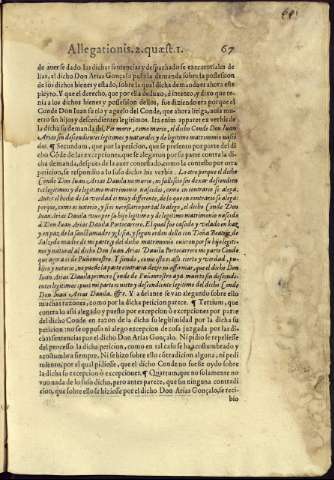 Allegationis. 2. quæst. 1. 67
de auer se dado las dichas sentencias y despachado se executoriales de
llas, el dicho Don Arias Gonçalo puso la demanda sobre la possession
de los dichos bienes y estado, sobre la qual dicha demanda es ahora este
pleyto. Y que el derecho, que por ella deduxo, è intento, y dixo que te-
nia a los dichos bienes y possession dellos, fue diziendo era porque el
Conde Don Iuan su tio y aguelo del Conde, que ahora litiga, auia mu-
erto sin hijos y descendientes legitimos.
la dicha su demanda ibi. Por morir, como murio, el dicho Conde Don Iuan
Arias sin descendientes legitimos y naturales y de legitimo matrimonio nasci-
dos. ¶ Secundum, que por la peticion, que se presento por parte del di
cho Conde de las excepciones, que se alegaron por la parte contra la di
cha demanda, despues de la auer contestado, como la contesto por otra
peticion, se respondio a lo suso dicho his verbis. Lo otro porque el dicho
Conde Don Iuan Arias Dauila no murio, ni fallescio sin dexar descendien
tes legitimos y de legitimo matrimonio nascidos, como en contrario se alega.
Antes el hecho de la verdad es muy differente, de lo que en contrario se alega
porque, como es notorio, y sier necessario prouar lo alego, el dicho Conde Don
Iuan Arias Dauila vuo por su hijo legitimo y de legitimo matrimonio nascido
à Don Iuan Arias Dauila Portocarrero. El qual fue casado y velado en haz
y en paz, de la sancta madre yglesia, y segun orden della con Doña Beatriz de
Salzedo madre de mi parte, y del dicho matrimonio
mo y natural al dicho Don Iuan Arias Dauila Portocarrero mi parte Conde
que agora es de Puñonrostro. Y siendo, como es, assi cierto y verdad,
publico y notorio, no puede la parte contraria dezir ni affirmar, que el dicho Don
Iuan Arias Dauila primero Conde de Puñonrostro aya muerto sin descendi-
entes legitimos, pues mi parte es nieto y descendiente legitimo del dicho Conde
Don Iuan Arias Dauila. &c. Y adelante se van alegando sobre ello
muchas razones, como por la dicha peticion parece. ¶ Tertium, que
contra lo assi alegado y puesto por excepcion ò excepciones por parte
del dicho Conde en razon de la dicha su legitimidad por la dicha su
peticion no se oppuso ni alego excepcion de cosa juzgada por las di
chas sentencias por el dicho Don Arias Gonçalo. Ni pidio se repeliesse
del processo la dicha peticion, como en tal caso se ha acostumbrado y
acostumbra siempre. Ni se hizo sobre ello contradicion alguna, ni pedi
miento, por el qual pidiesse, que el dicho Conde no fuesse oydo sobre
la dicha su excepcion ò excepciones. ¶ Quartum, que no solamente no
vuo nada de lo suso dicho, pero antes parece, que sin ninguna contradi
cion, que sobre ello se hiziesse por el dicho Don Arias Gonçalo, se reci
bio